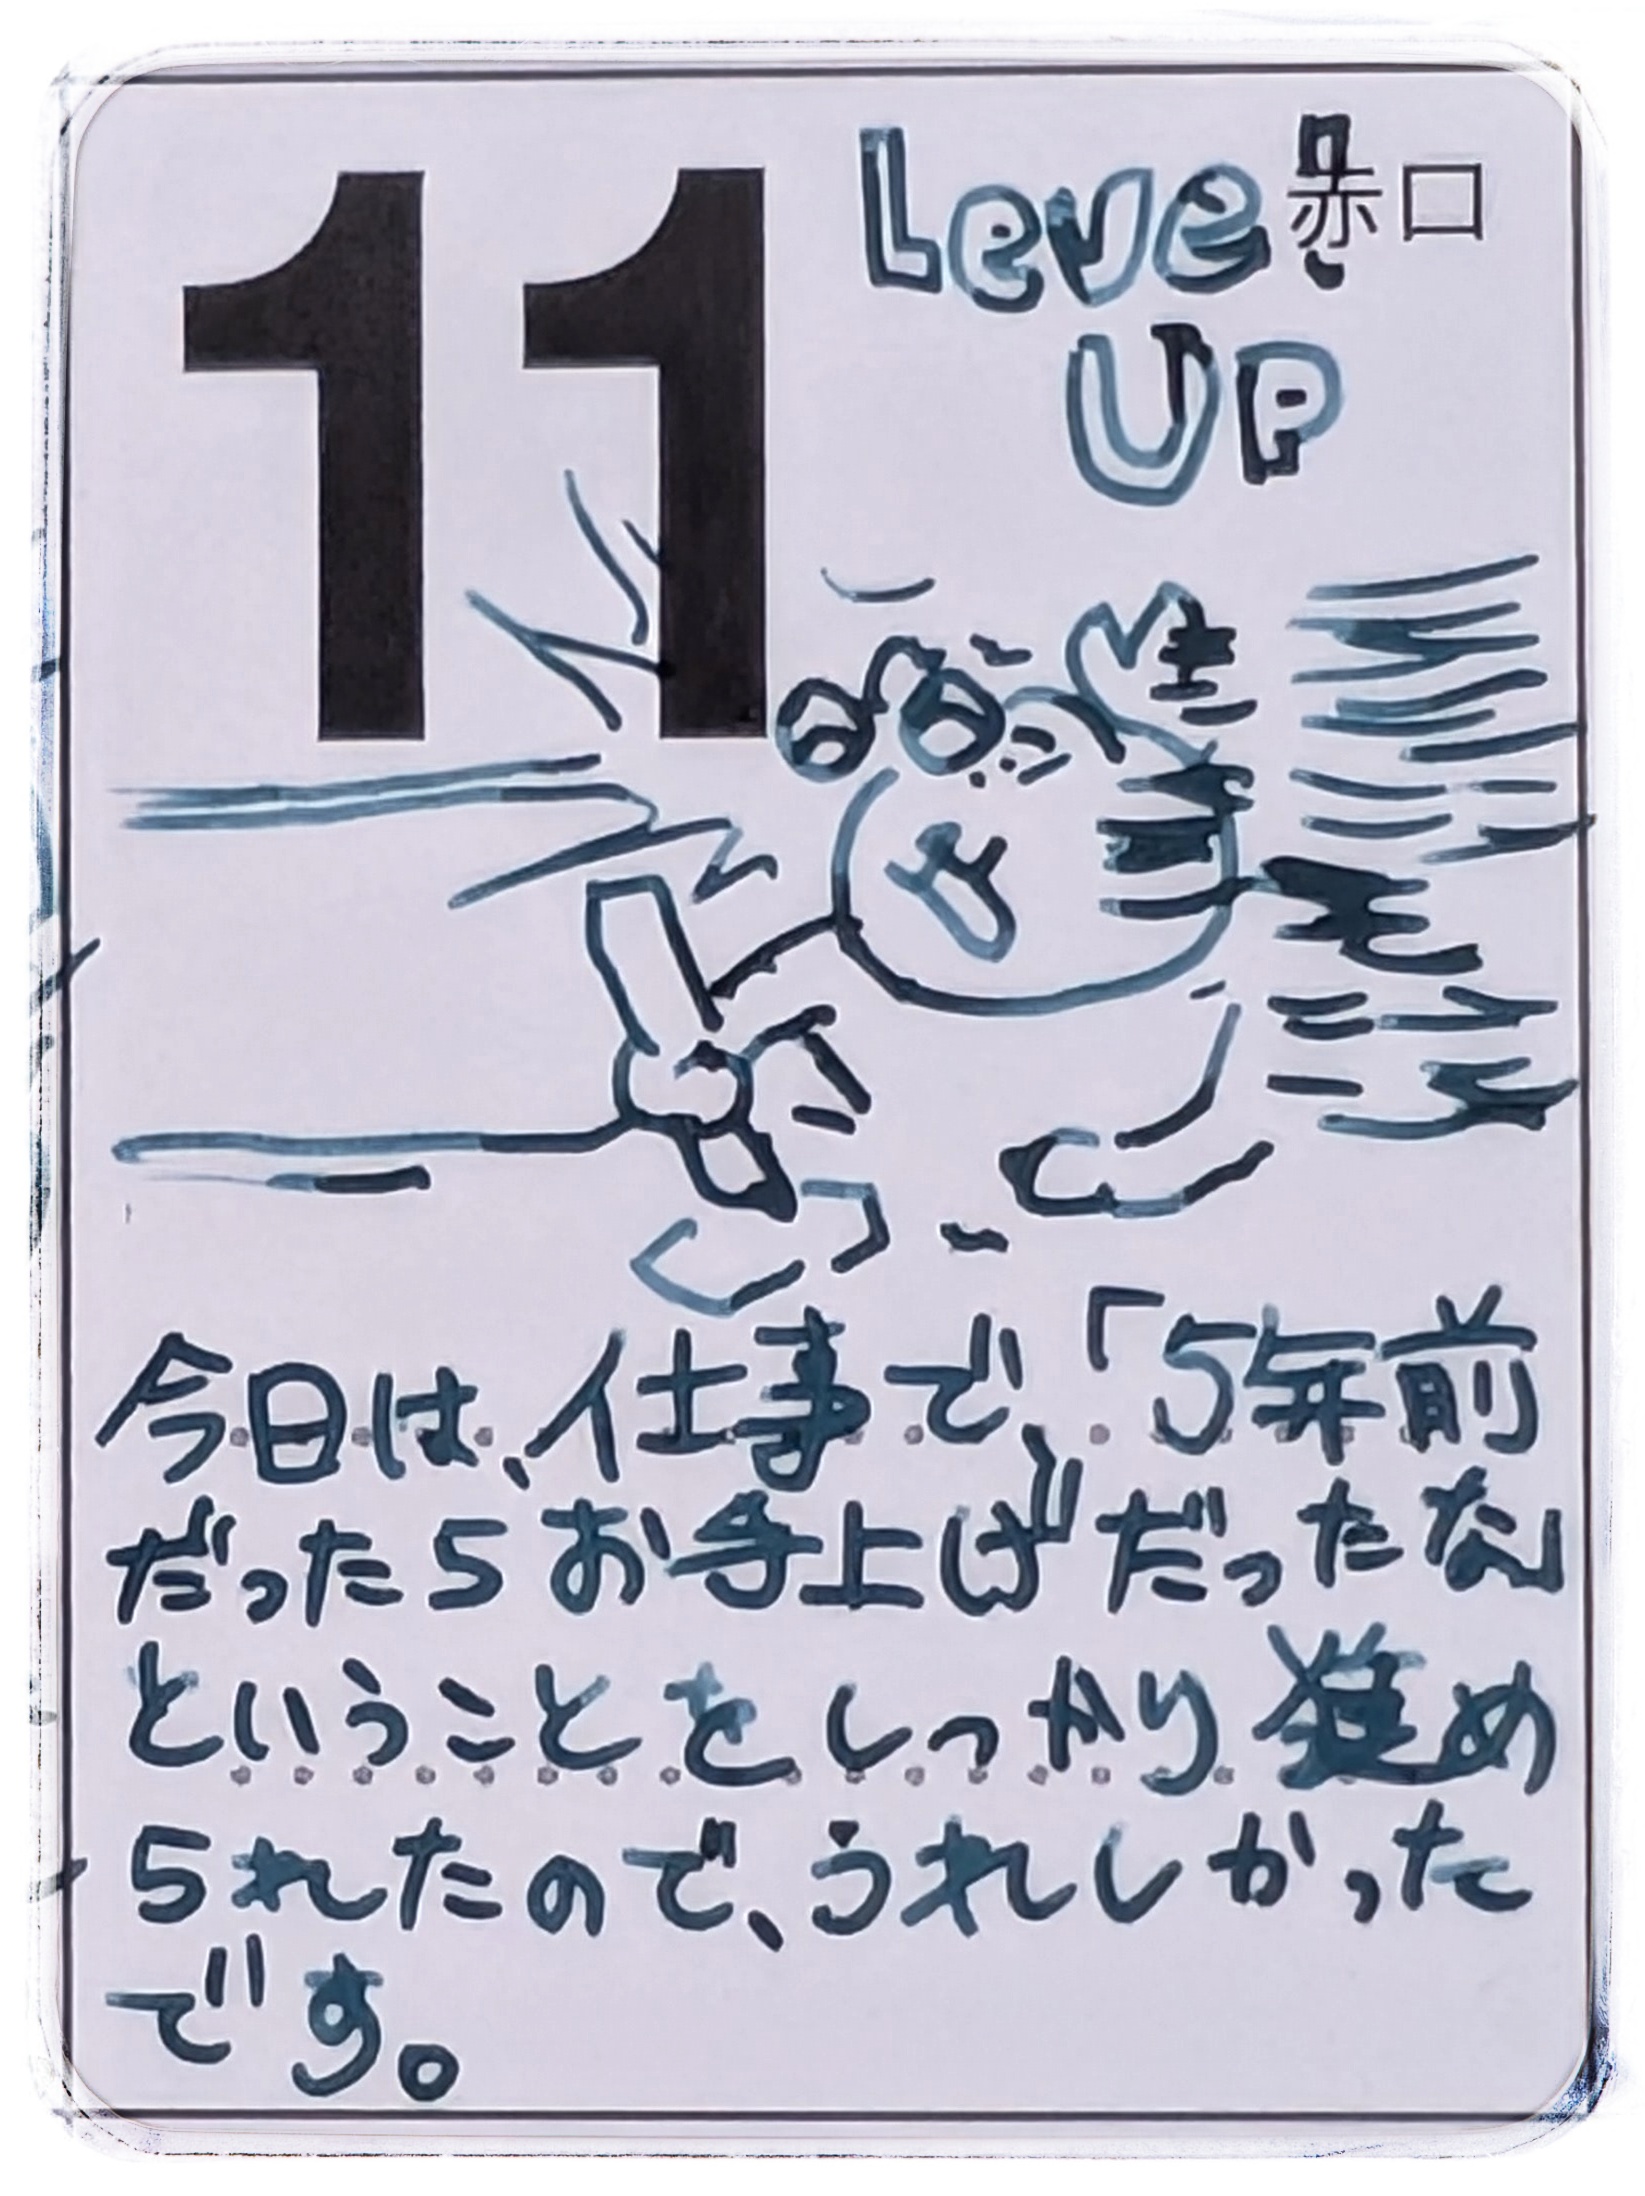 11
Level
赤口
UP
今日は、仕事で、「5年前
だったらお手上げだったな」
ということをしっかり進め
られたので、うれしかった
です。